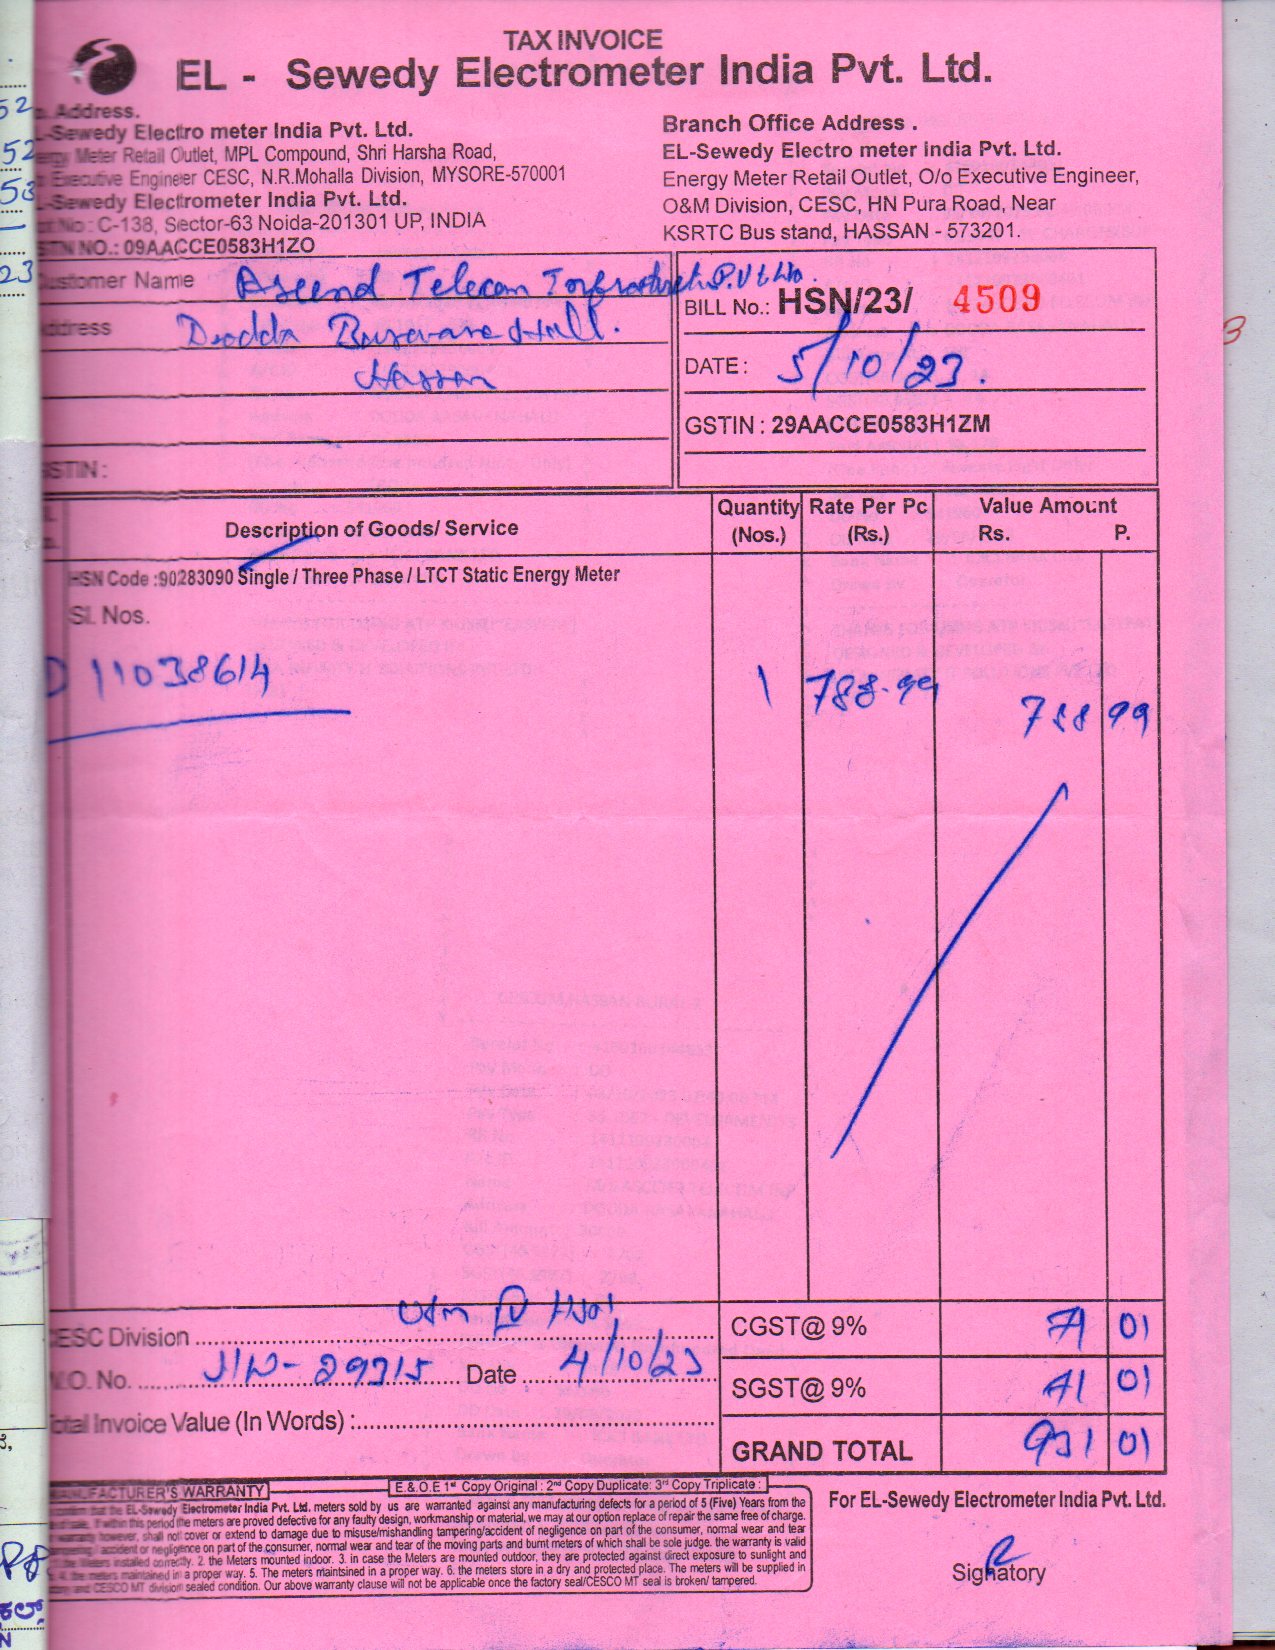 TAX INVOICE
EL - Sewedy Electrometer India Pvt. Ltd.
Address.
-Sewedy Electro meter India Pvt. Ltd.
Meter Retail Outlet, MPL Compound, Shri Harsha Road,
Executive Engineer CESC, N.R.Mohalla Division, MYSORE-570001
-Sewedy Electrometer India Pvt. Ltd.
No : C-138, Sector-63 Noida-201301 UP, INDIA
STN NO.: 09AACCE0583H1ZO
Branch Office Address .
EL-Sewedy Electro meter India Pvt. Ltd.
Energy Meter Retail Outlet, O/o Executive Engineer,
O&M Division, CESC, HN Pura Road, Near
KSRTC Bus stand, HASSAN - 573201.
ustomer Name Ascend Telecom Infrastructure P.V t Ltd.
ddress Dodda Basavanahalli.
Hassan
STIN :
BILL No.: HSN/23/ 4509
DATE : 5/10/23.
GSTIN : 29AACCE0583H1ZM
Description of Goods/ Service
Quantity (Nos.)
Rate Per Pc (Rs.)
Value Amount
Rs. P.
HSN Code :90283090 Single / Three Phase / LTCT Static Energy Meter
Sl. Nos.
D 11038614 1 788.99 788 99
CESC Division
.O. No. JIN-29315 Date 4/10/23
otal Invoice Value (In Words) :
CGST@ 9% 71 01
SGST@ 9% 71 01
GRAND TOTAL 931 01
MANUFACTURER'S WARRANTY
E.&.O.E 1st Copy Original : 2nd Copy Duplicate: 3rd Copy Triplicate :
the EL-Sewedy Electrometer India Pvt. Ltd. meters sold by us are warranted against any manufacturing defects for a period of 5 (Five) Years from the
If within this period the meters are proved defective for any faulty design, workmanship or material, we may at our option replace of repair the same free of charge.
warranty however, shall not cover or extend to damage due to misuse/mishandling tampering/accident of negligence on part of the consumer, normal wear and tear
accident or negligence on part of the consumer, normal wear and tear of the moving parts and burnt meters of which shall be sole judge. the warranty is valid
the Meters installed correctly. 2. the Meters mounted indoor. 3. in case the Meters are mounted outdoor, they are protected against direct exposure to sunlight and
4. the meters maintained in a proper way. 5. The meters maintsined in a proper way. 6. the meters store in a dry and protected place. The meters will be supplied in
and CESCO MT division sealed condition. Our above warranty clause will not be applicable once the factory seal/CESCO MT seal is broken/ tampered.
For EL-Sewedy Electrometer India Pvt. Ltd.
Signatory